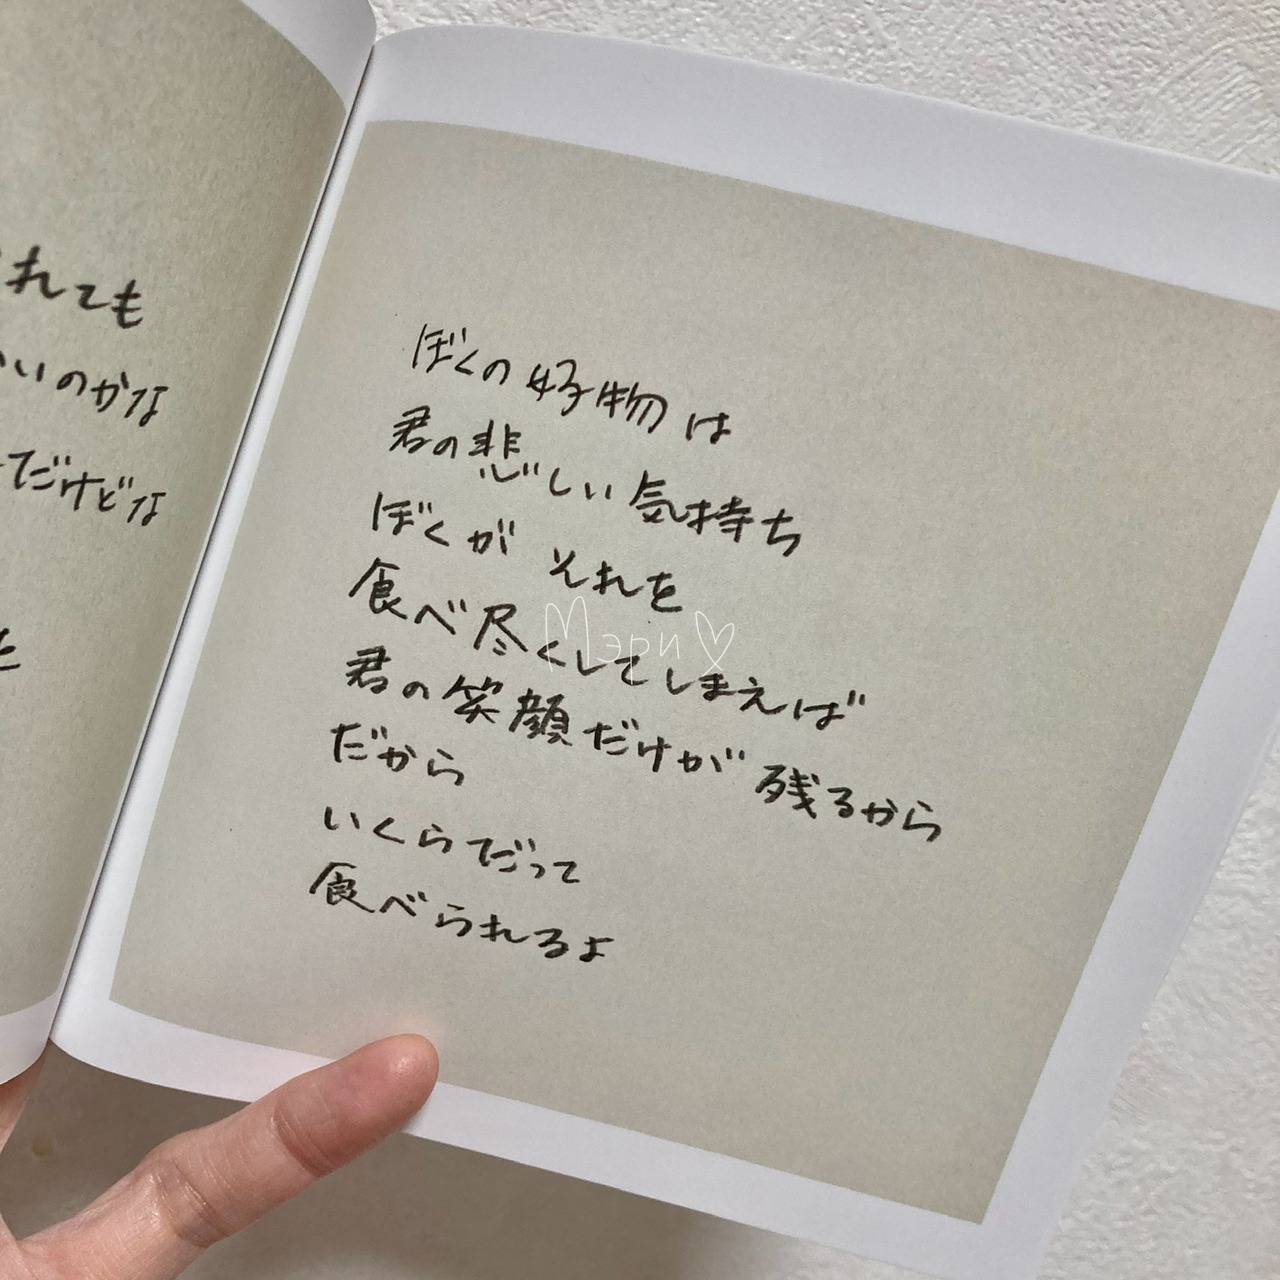 れても
いのかな
だけどな
ぼくの好物は
君の悲しい気持ち
ぼくが それを
食べ尽くしてしまえば
君の笑顔だけが 残るから
だから
いくらだって
食べられるよ
Мэри♡